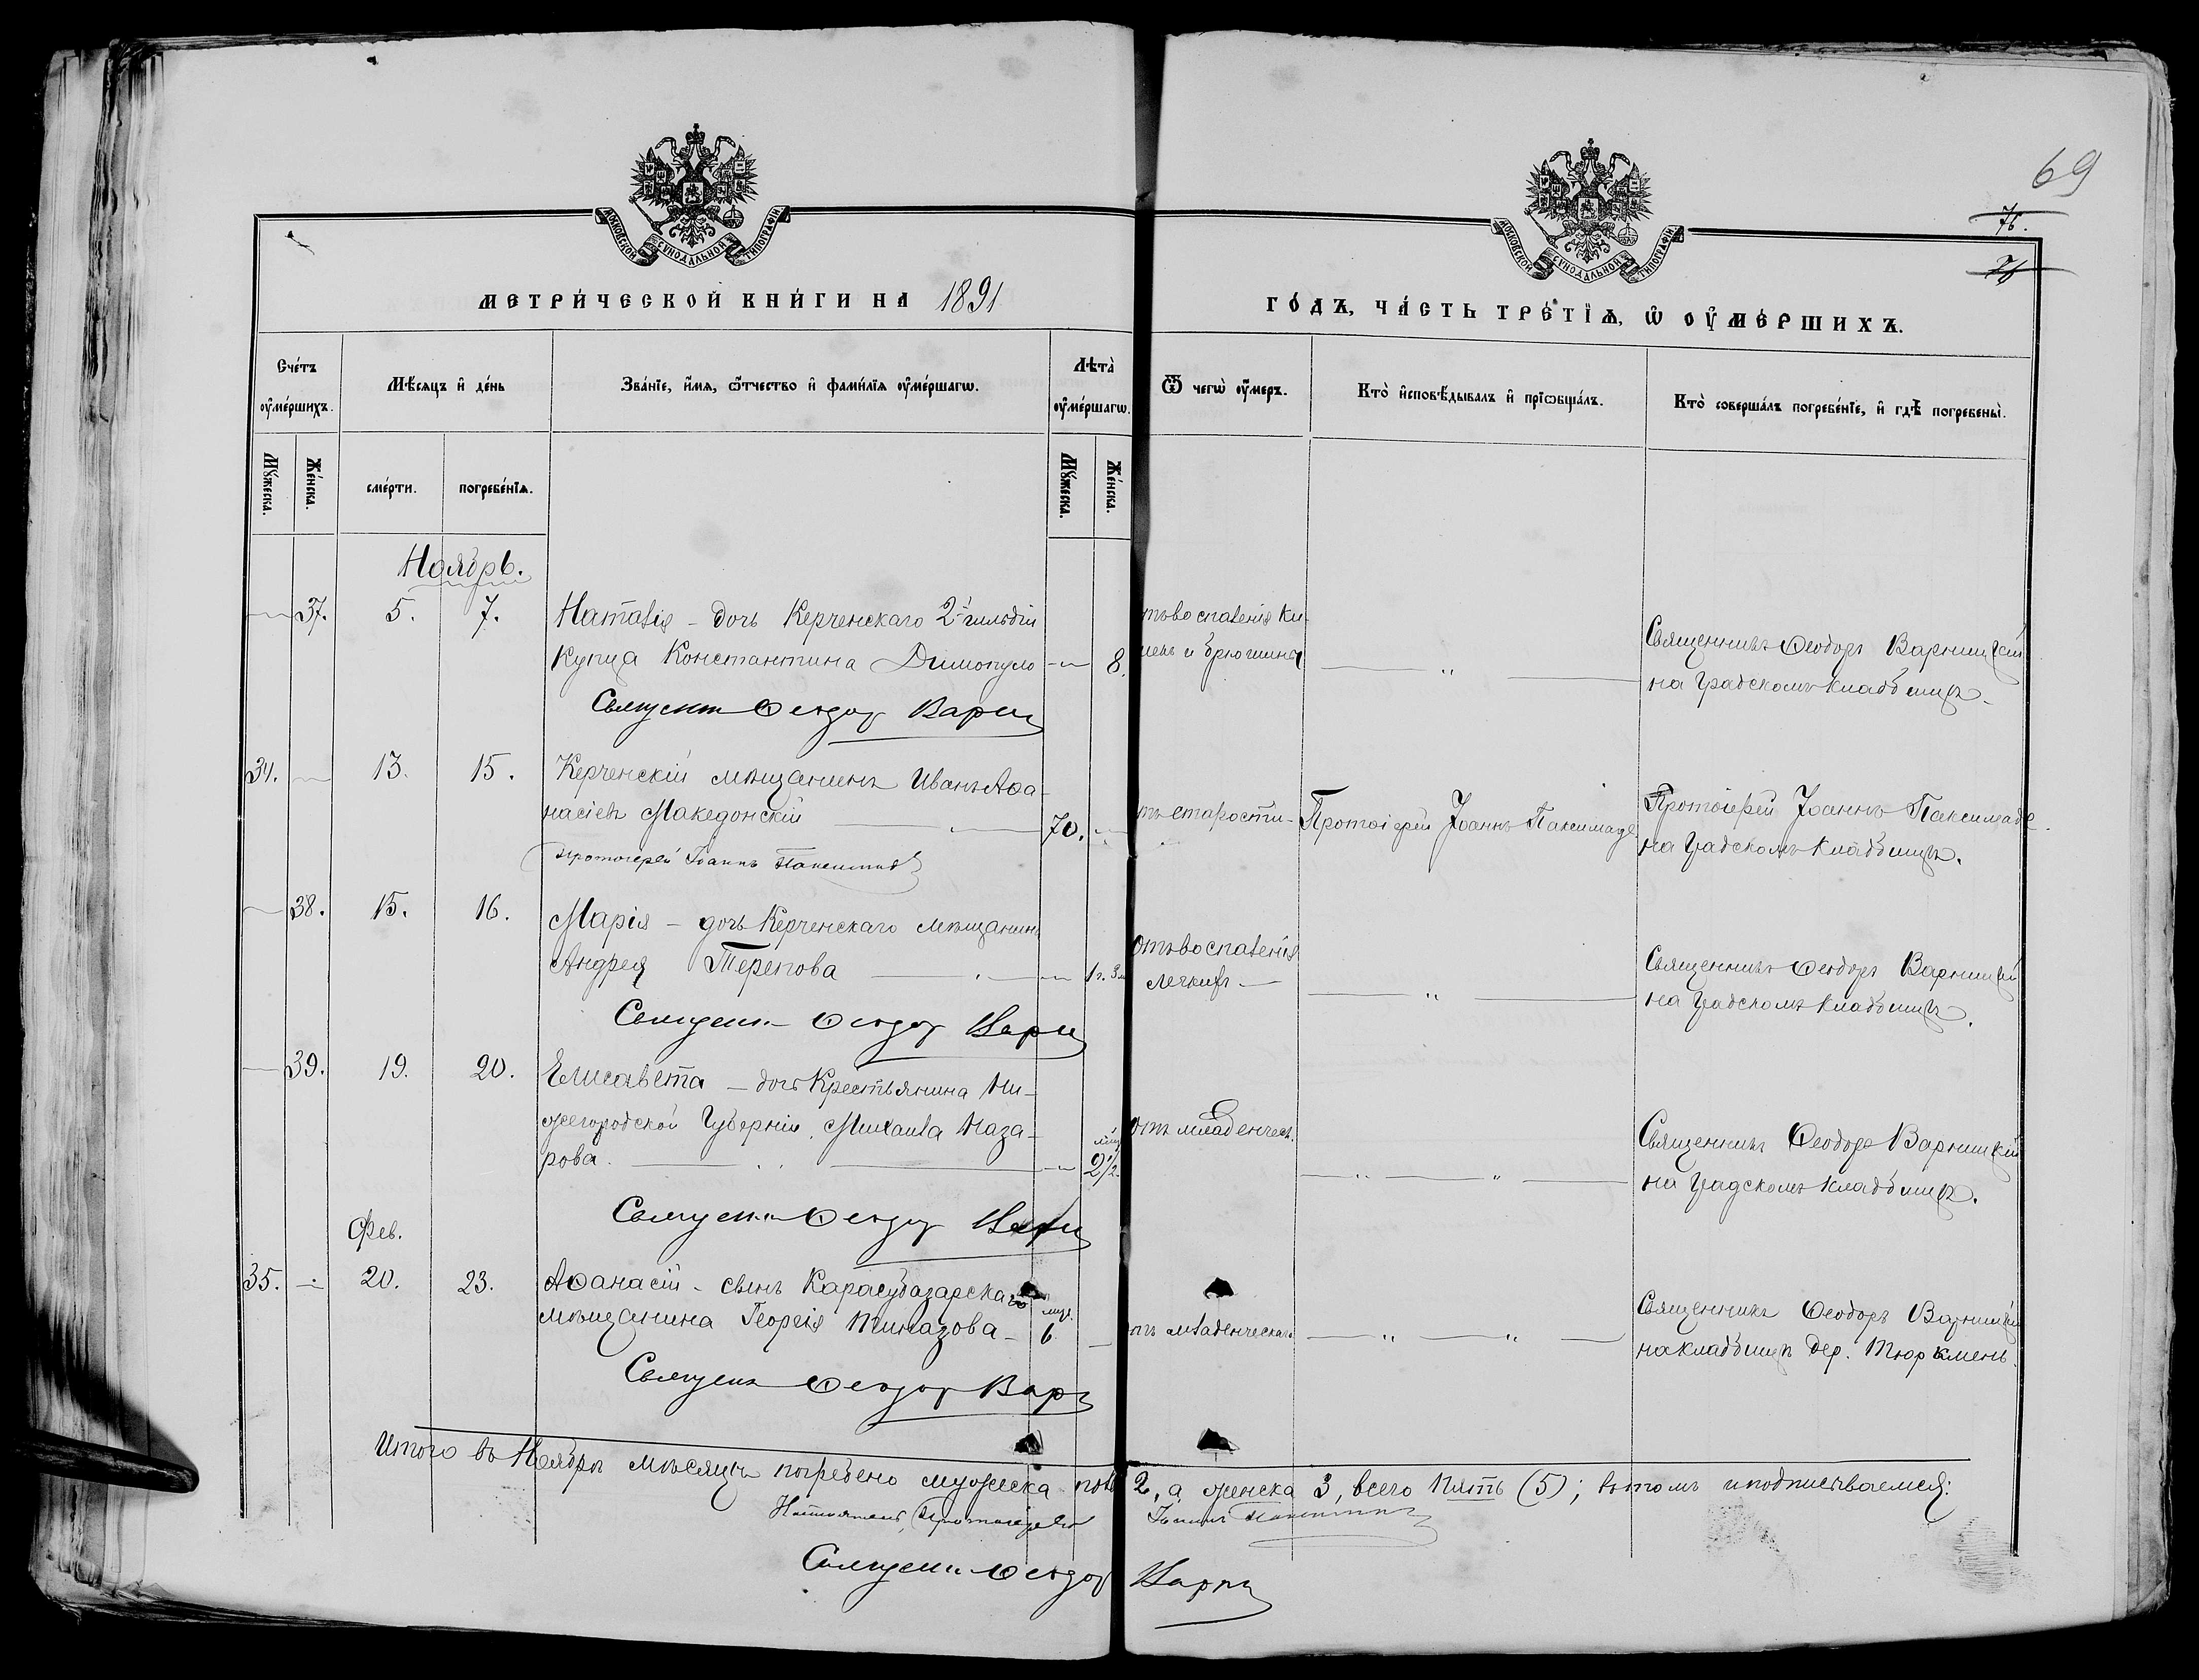 69
76.
76
МОСКОВСКОЙ СУНОДАЛЬНОЙ ТИПОГРАФІИ
МОСКОВСКОЙ СУНОДАЛЬНОЙ ТИПОГРАФІИ
МЕТРИ́ЧЕСКОЙ КНИ́ГИ НА 1891
ГО́ДЪ, ЧА́СТЬ ТРЕ́ТЇѦ, Ѡ҆ ОУ҆МЕ́РШИХЪ.
Сче́тъ оу҆ме́ршихъ.
Мѣ́сяцъ и҆ де́нь
Зва́нїе, и҆́мѧ, ѻ҆́тчество и҆ фами́лїѧ оу҆ме́ршагѡ.
Лѣта̀ оу҆ме́ршагѡ.
Ѿ чегѡ̀ оу҆́меръ.
Кто̀ и҆сповѣ́дывалъ и҆ прїѡбща́лъ.
Кто̀ соверша́лъ погребе́нїе, и҆ гдѣ̀ погребены̀.
Мꙋ́жеска.
Же́нска.
сме́рти.
погребе́нїѧ.
Мꙋ́жеска.
Же́нска.
Ноябрь.
37. 5. 7. Наталія - дочь Керченскаго 2й гильдіи
купца Константина Димопуло 8.
Священникъ Ѳеодоръ Варниц
отъ воспаленія ки-
шекъ и брюшины
Священникъ Ѳеодоръ Варницкій
на градскомъ кладбищѣ.
34. 13. 15. Керченскій мѣщанинъ Иванъ Аѳа-
насіевъ Македонскій 70.
Протоіерей Іоаннъ Паксимадѣ
отъ старости
Протоіерей Іоаннъ Паксимаде
Протоіерей Іоаннъ Паксимаде
на градскомъ кладбищѣ.
38. 15. 16. Марія - дочь Керченскаго мѣщанина
Андрея Терепова 1 г. 3 м
Священникъ Ѳеодоръ Варниц
Отъ воспаленія
легкихъ
Священникъ Ѳеодоръ Варницкій
на градскомъ кладбищѣ.
39. 19. 20. Елисавета - дочь Крестьянина Ни-
жегородской Губерніи, Михаила Наза-
рова. 2 1/2
Священникъ Ѳеодоръ Варниц
Отъ младенческ.
Священникъ Ѳеодоръ Варницкій
на градскомъ кладбищѣ.
Фев.
35. 20. 23. Аѳанасій - сынъ Карасубазарскаго
мѣщанина Георгія 6
Священникъ Ѳеодоръ Варн
отъ младенческаго
Священникъ Ѳеодоръ Варницкій
на кладбищѣ дер. Тюркмень.
Итого въ Ноябрѣ мѣсяцѣ погребено мужеска пола 2, а женска 3, всего Пять (5); въ томъ и подписываемся:
Настоятель, Протоіерей Іоаннъ Паксимадѣ
Священникъ Ѳеодоръ Варниц